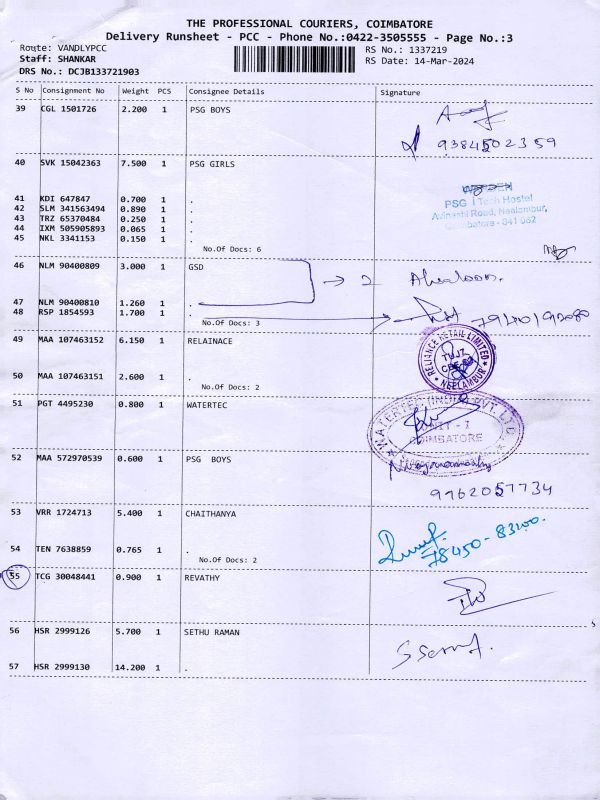 THE PROFESSIONAL COURIERS, COIMBATORE
Delivery Runsheet - PCC - Phone No.:0422-3505555 - Page No.:3
Route: VANDLYPCC
RS No.: 1337219
Staff: SHANKAR
RS Date: 14-Mar-2024
DRS No.: DCJB133721903
S No Consignment No Weight PCS Consignee Details Signature
39 CGL 1501726 2.200 1 PSG BOYS
9384502359
40 SVK 15042363 7.500 1 PSG GIRLS
41 KDI 647847 0.700 1 .
42 SLM 341563494 0.890 1 .
43 TRZ 65370484 0.250 1 .
44 IXM 505905893 0.065 1 .
45 NKL 3341153 0.150 1 .
PSG i Tech Hostel
Avinashi Road, Neelambur,
Coimbatore - 641 062
No.Of Docs: 6
46 NLM 90400809 3.000 1 GSD
2
47 NLM 90400810 1.260 1 .
48 RSP 1854593 1.700 1 .
No.Of Docs: 3
49 MAA 107463152 6.150 1 RELAINACE
RELIANCE RETAIL LIMITED
TUJZ
* NEELAMBUR *
50 MAA 107463151 2.600 1 .
No.Of Docs: 2
51 PGT 4495230 0.800 1 WATERTEC
WATERTEC (INDIA) PVT. LTD.
UNIT - I
COIMBATORE
52 MAA 572970539 0.600 1 PSG BOYS
9962057734
53 VRR 1724713 5.400 1 CHAITHANYA
78450-83200.
54 TEN 7638859 0.765 1 .
No.Of Docs: 2
55 TCG 30048441 0.900 1 REVATHY
56 HSR 2999126 5.700 1 SETHU RAMAN
57 HSR 2999130 14.200 1 .